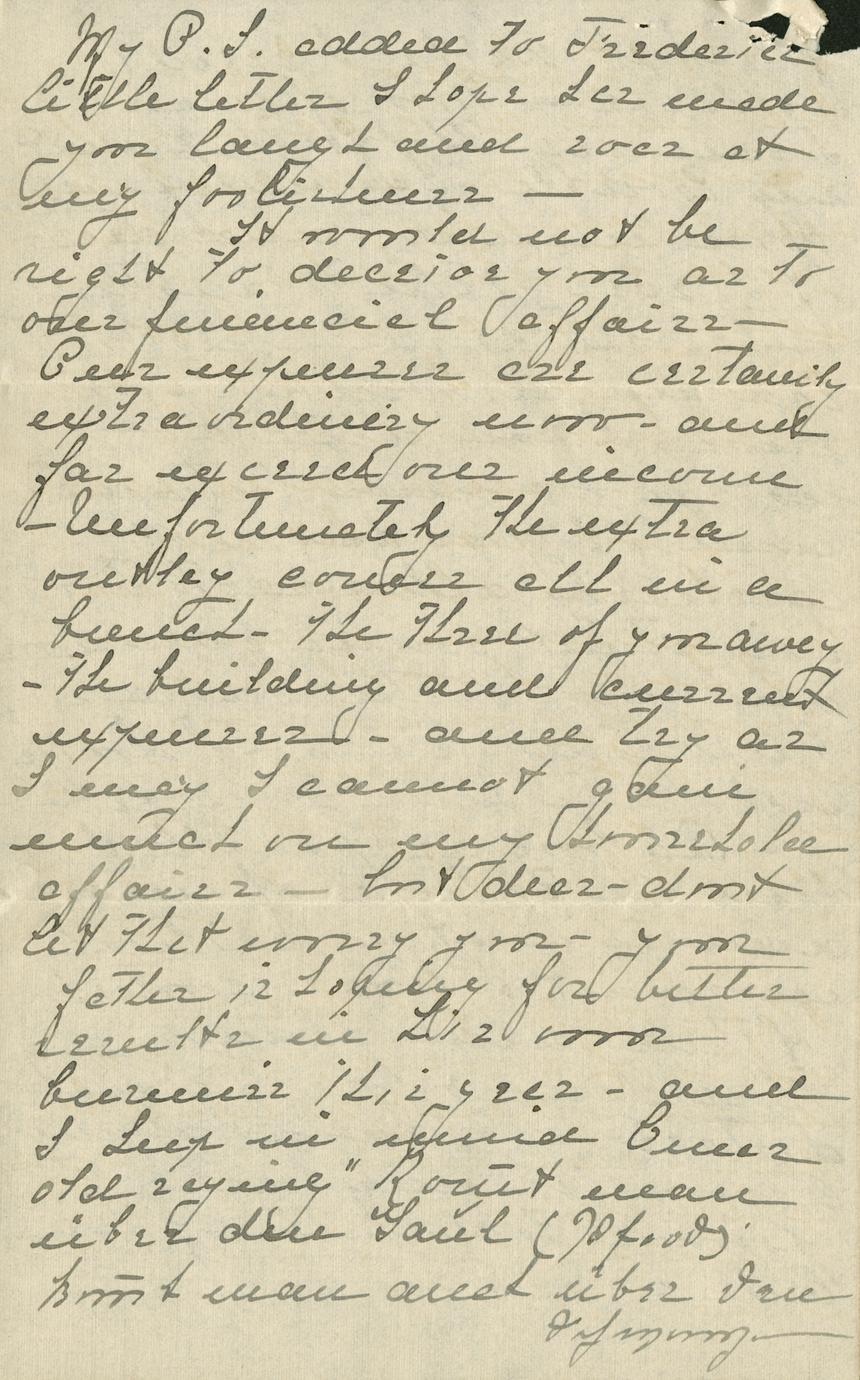 My P.S. added to Frederics
little letter I hope has made
you laugh and roar at
my foolishness —
It would not be
right to deceive you as to
our financial affairs —
Our expenses are certainly
extraordinary now - and
far exceed our income
- Unfortunately the extra
outlay comes all in a
bunch - the three of you away
- the building and current
expenses - and try as
I may I cannot gain
much on my household
affairs — but dear - dont
let that worry you - your
father is hoping for better
results in his
business this year - and
I keep in mind
old saying " Komt man
über den Gaul (Pferd)
komt man auch über den